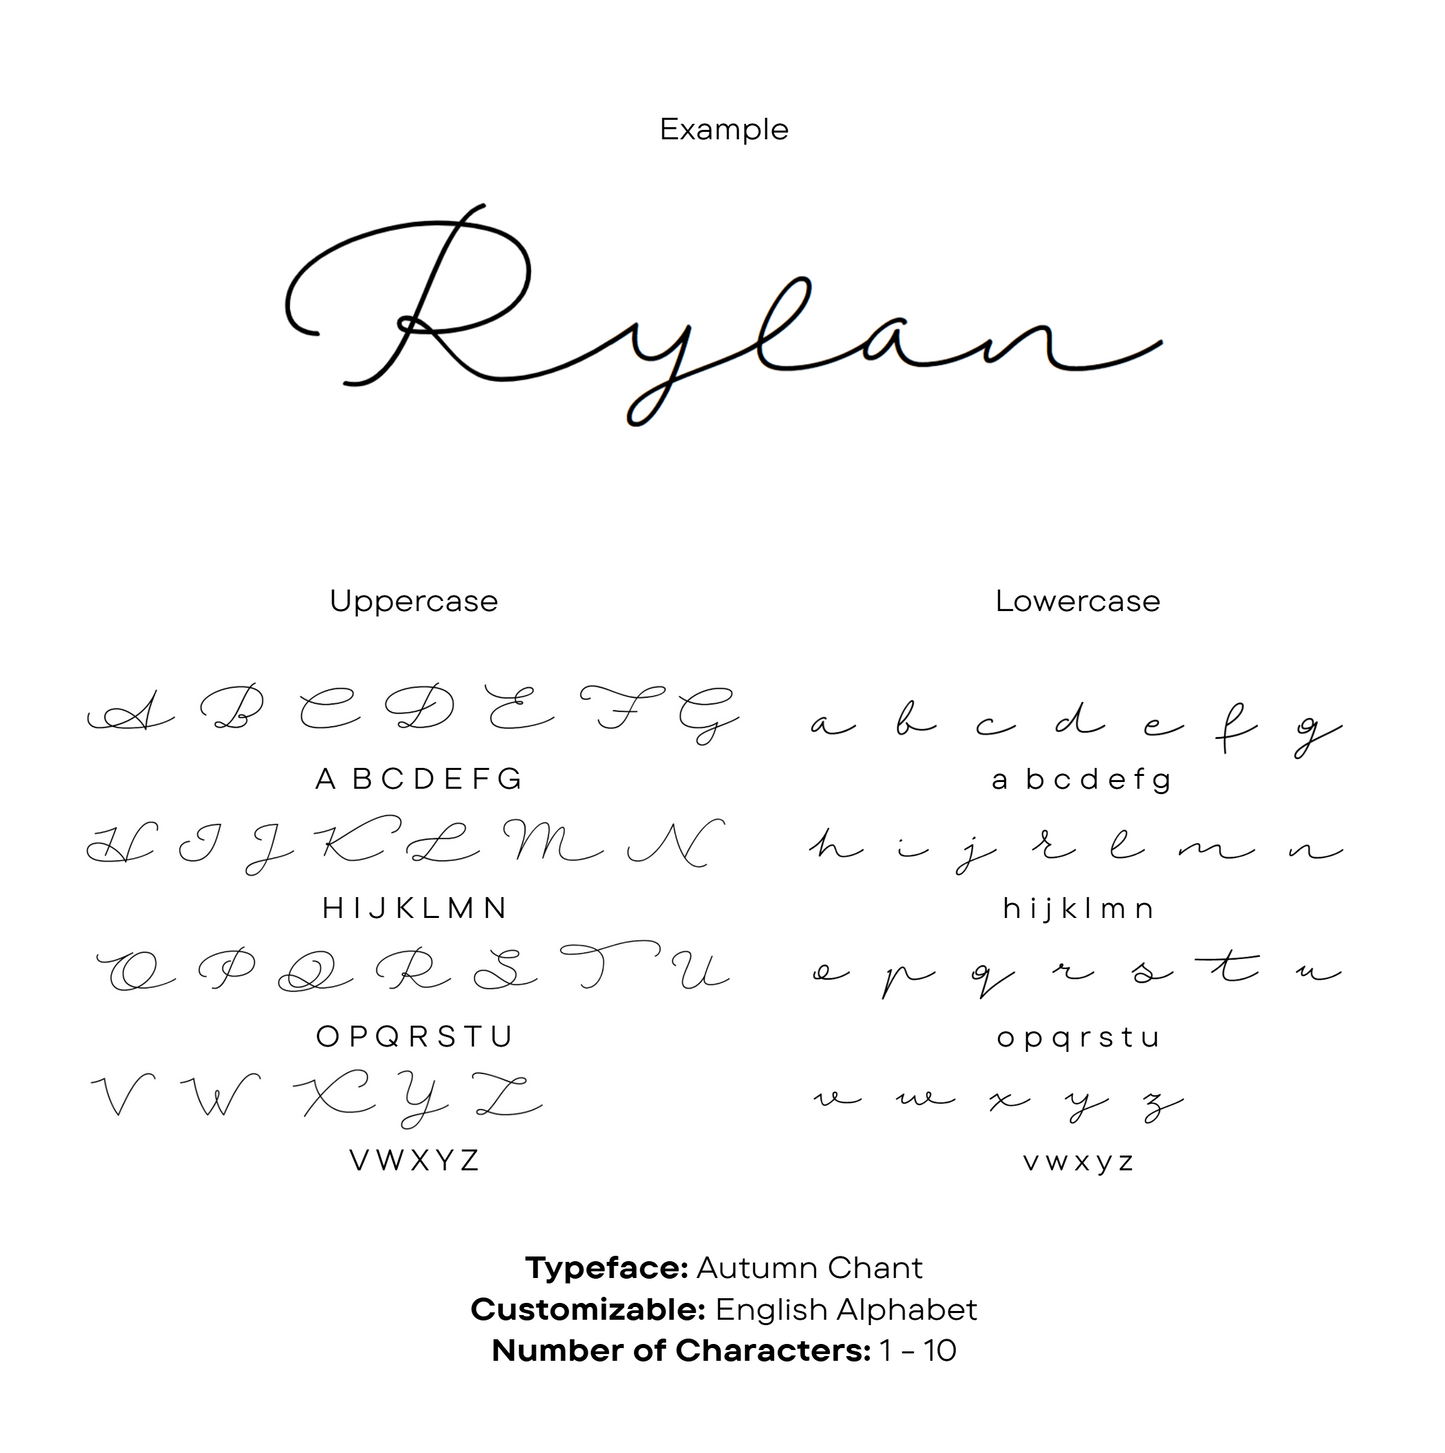 Example
Rylan
Uppercase
A B C D E F G
A B C D E F G
H I J K L M N
H I J K L M N
O P Q R S T U
O P Q R S T U
V W X Y Z
V W X Y Z
Lowercase
a b c d e f g
a b c d e f g
h i j k l m n
h i j k l m n
o p q r s t u
o p q r s t u
v w x y z
v w x y z
Typeface: Autumn Chant
Customizable: English Alphabet
Number of Characters: 1 - 10